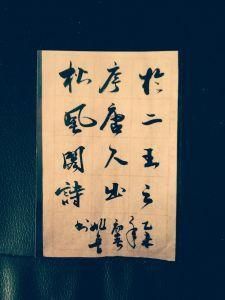 於二王之
序唐人出
松風閣詩
乙未